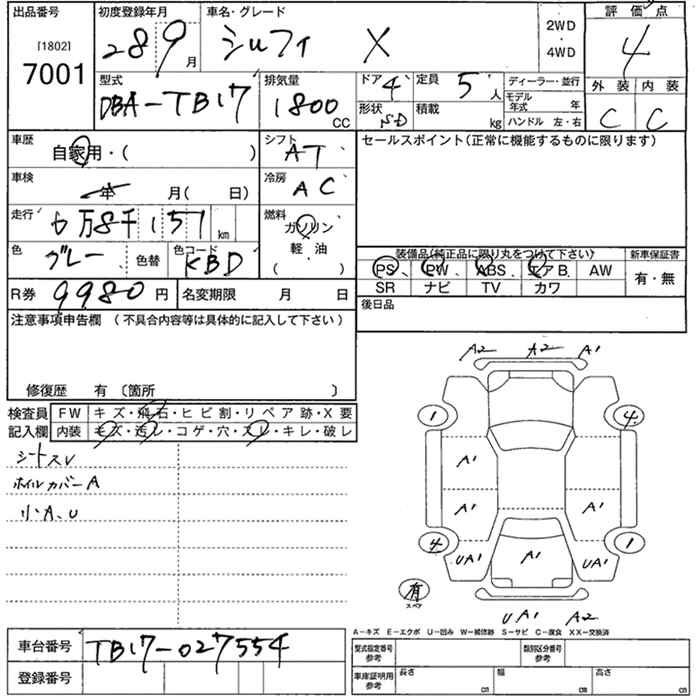 出品番号
[1802]
7001
初度登録年月
28 9 月
車名・グレード
シルフィ X
2WD
・
4WD
評価点
4
外装 内装
C C
型式
DBA-TB17
排気量
1800 CC
ドア 4
形状 SD
定員 5 人
積載 kg
ディーラー・並行
モデル年式 年
ハンドル 左・右
車歴
自家用・( )
シフト
AT
セールスポイント(正常に機能するものに限ります)
車検
年 月( 日)
冷房
AC
走行
6万8千151 km
燃料
ガソリン
軽・油
( ・ )
色
グレー
色替
色コード
KBD
装備品(純正品に限り丸をつけて下さい)
新車保証書
PS PW ABS エアB. AW
SR ナビ TV カワ
有・無
R券 9980 円
名変期限 月 日
後日品
注意事項申告欄 (不具合内容等は具体的に記入して下さい)
修復歴 有 〔箇所 〕
検査員
記入欄
FW キズ・飛石・ヒビ割・リペア跡・X要
内装 キズ・汚レ・コゲ・穴・スレ・キレ・破レ
シートスレ
ホイルカバーA
小A、U
A2 A2 A1
1 4
A1
A1 A1
4 1
UA1 A1 UA1
有
スペア
UA1 A2
A-キズ E-エクボ U-凹み W-補修跡 S-サビ C-腐食 XX-交換済
車台番号 TB17-027554
登録番号
型式指定番号
参考
類別区分番号
参考
車庫証明用
参考
長さ cm
幅 cm
高さ cm